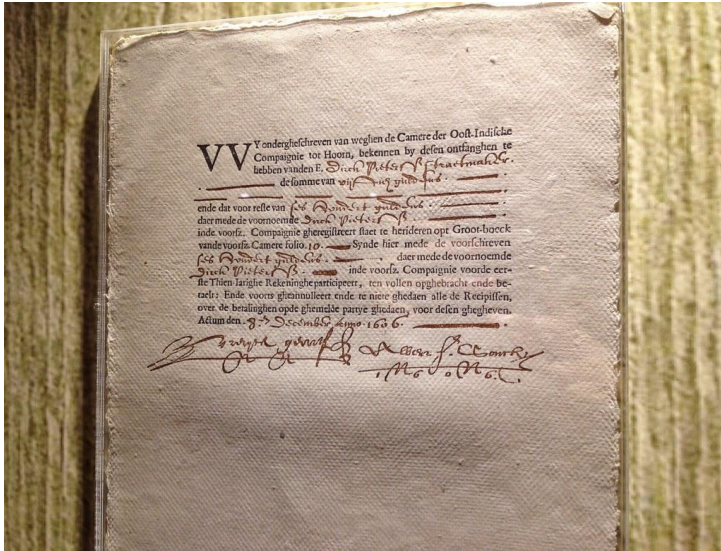 VVY ondergheschreven van weghen de Camere der Oost-Indische
Compaignie tot Hoorn, bekennen by desen ontfanghen te
hebben vanden E. Dirck Pietersz Straetmaker.
de somme van
ende dat voor reste van ses hondert guldens.
daer mede de voornoemde Dirck Pietersz
inde voorsz. Compaignie gheregistreert staet te herideren opt Groot-boeck
vande voorsz. Camere folio. 10. Synde hier mede de voorschreven
ses hondert guldens. daer mede de voornoemde
Dirck Pietersz inde voorsz. Compaignie voorde eer-
ste Thien-Iarighe Rekeninghe participeert, ten vollen opghebracht ende be-
taelt: Ende voorts gheannulleert ende te niete ghedaen alle de Recipissen,
over de betalinghen opde ghemelde partye ghedaen, voor desen ghegheven.
Actum den. 8. December Anno. 1606.